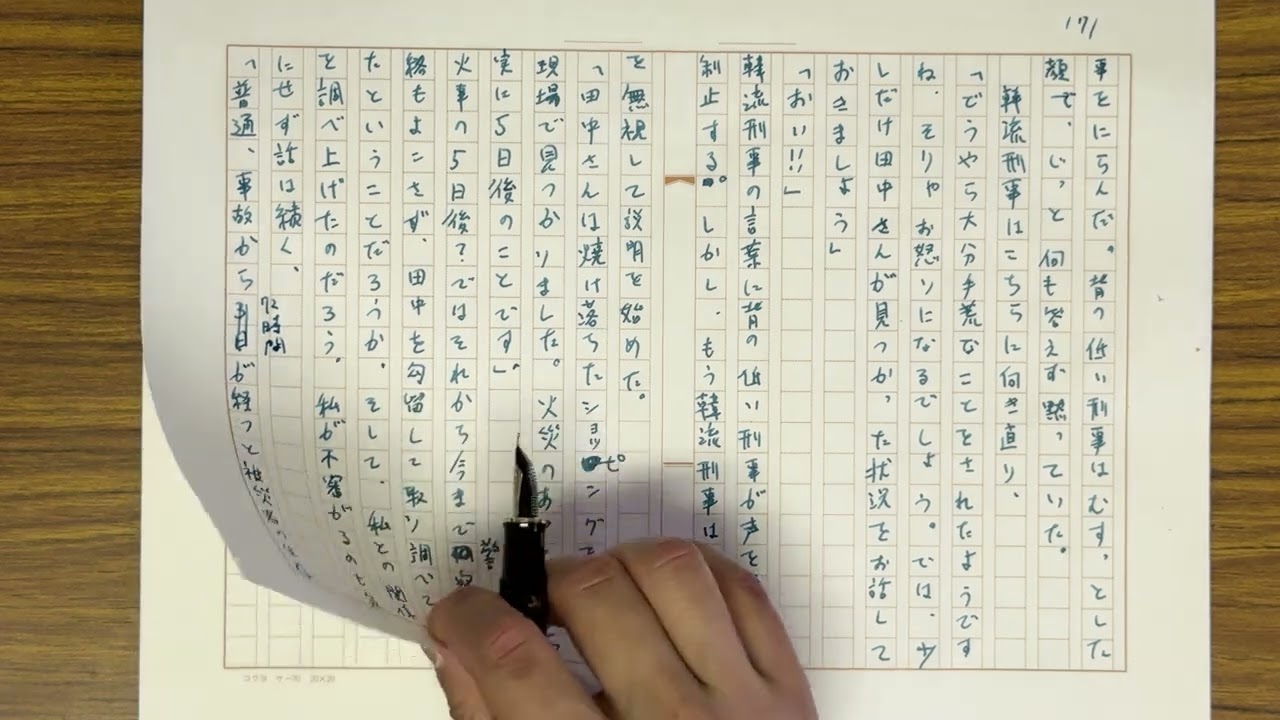 171
事をにらんだ。背の低い刑事はむすっとした
顔で、じっと何も答えず黙っていた。
韓流刑事はこちらに向き直り、
「どうやら大分手荒なことをされたようです
ね。そりゃお怒りになるでしょう。では、少
しだけ田中さんが見つかった状況をお話して
おきましょう」
「おい!!」
韓流刑事の言葉に背の低い刑事が声を
制止する。しかし、もう韓流刑事は
を無視して説明を始めた。
「田中さんは焼け落ちたショッピングモ
現場で見つかりました。火災のあ
実に5日後のことです」
火事の5日後?ではそれから今まで警
絡もよこさず、田中を勾留して取り調べて
たということだろうか。そして、私との関係
を調べ上げたのだろう。私が不審がるのも気
にせず話は続く、
「普通、事故から72時間が経つと被災者の生存